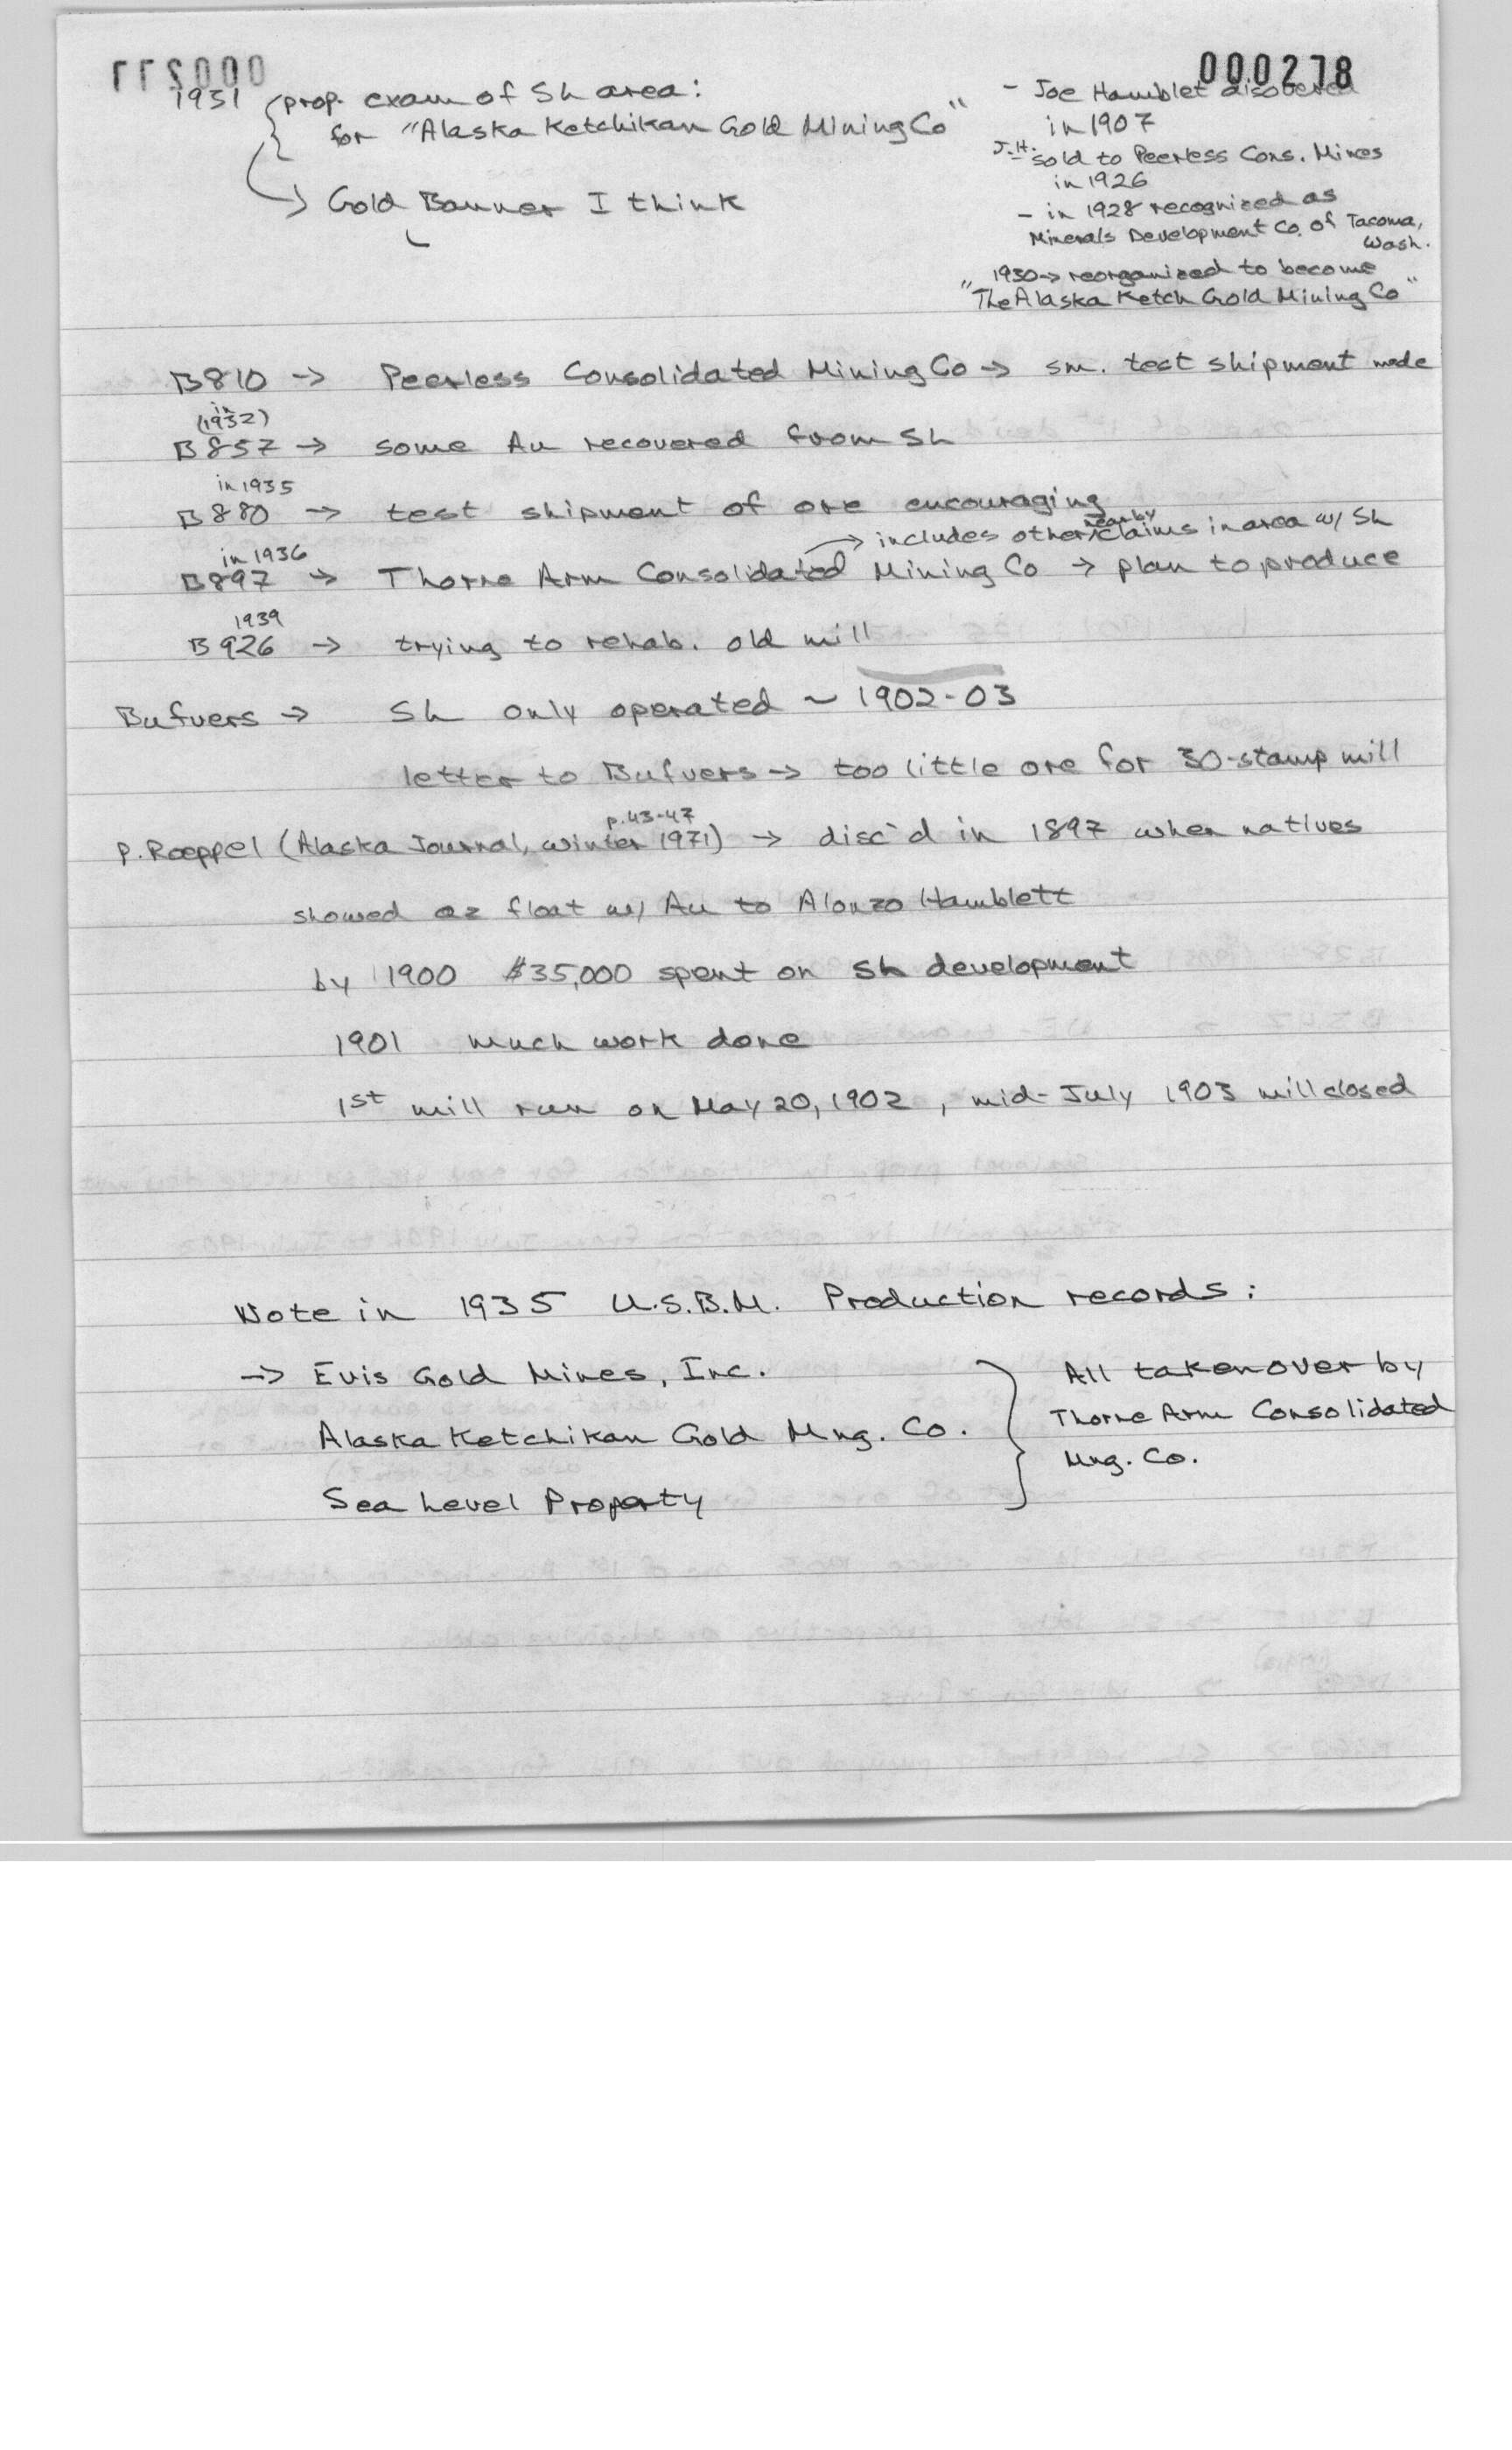 000277
000278
1931 prop. exam of SL area:
for "Alaska Ketchikan Gold Mining Co"
→ Gold Banner I think
- Joe Hamblet disovered
in 1907
J.H. - sold to Peerless Cons. Mines
in 1926
- in 1928 recognized as
Minerals Development Co. of Tacoma,
Wash.
1930 → reorganized to become
"The Alaska Ketch Gold Mining Co"
B810 → Peerless Consolidated Mining Co → sm. test shipment made
in
(1932)
B857 → some Au recovered from SL
in 1935
B880 → test shipment of ore encouraging
→ includes other nearby claims in area w/ SL
in 1936
B897 → Thorne Arm Consolidated Mining Co → plan to produce
1939
B926 → trying to rehab. old mill
Bufvers → SL only operated ~ 1902-03
letter to Bufvers → too little ore for 30-stamp mill
p. 43-47
P. Roeppel (Alaska Journal, winter 1971) → disc'd in 1897 when natives
showed qz float w/ Au to Alonzo Hamblett
by 1900 $35,000 spent on SL development
1901 much work done
1st mill run on May 20, 1902, mid-July 1903 mill closed
Note in 1935 U.S.B.M. Production records:
→ Evis Gold Mines, Inc.
Alaska Ketchikan Gold Mng. Co.
Sea Level Property
All taken over by
Thorne Arm Consolidated
Mng. Co.